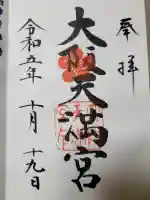 奉拝
大阪天満宮
令和五年十月十九日